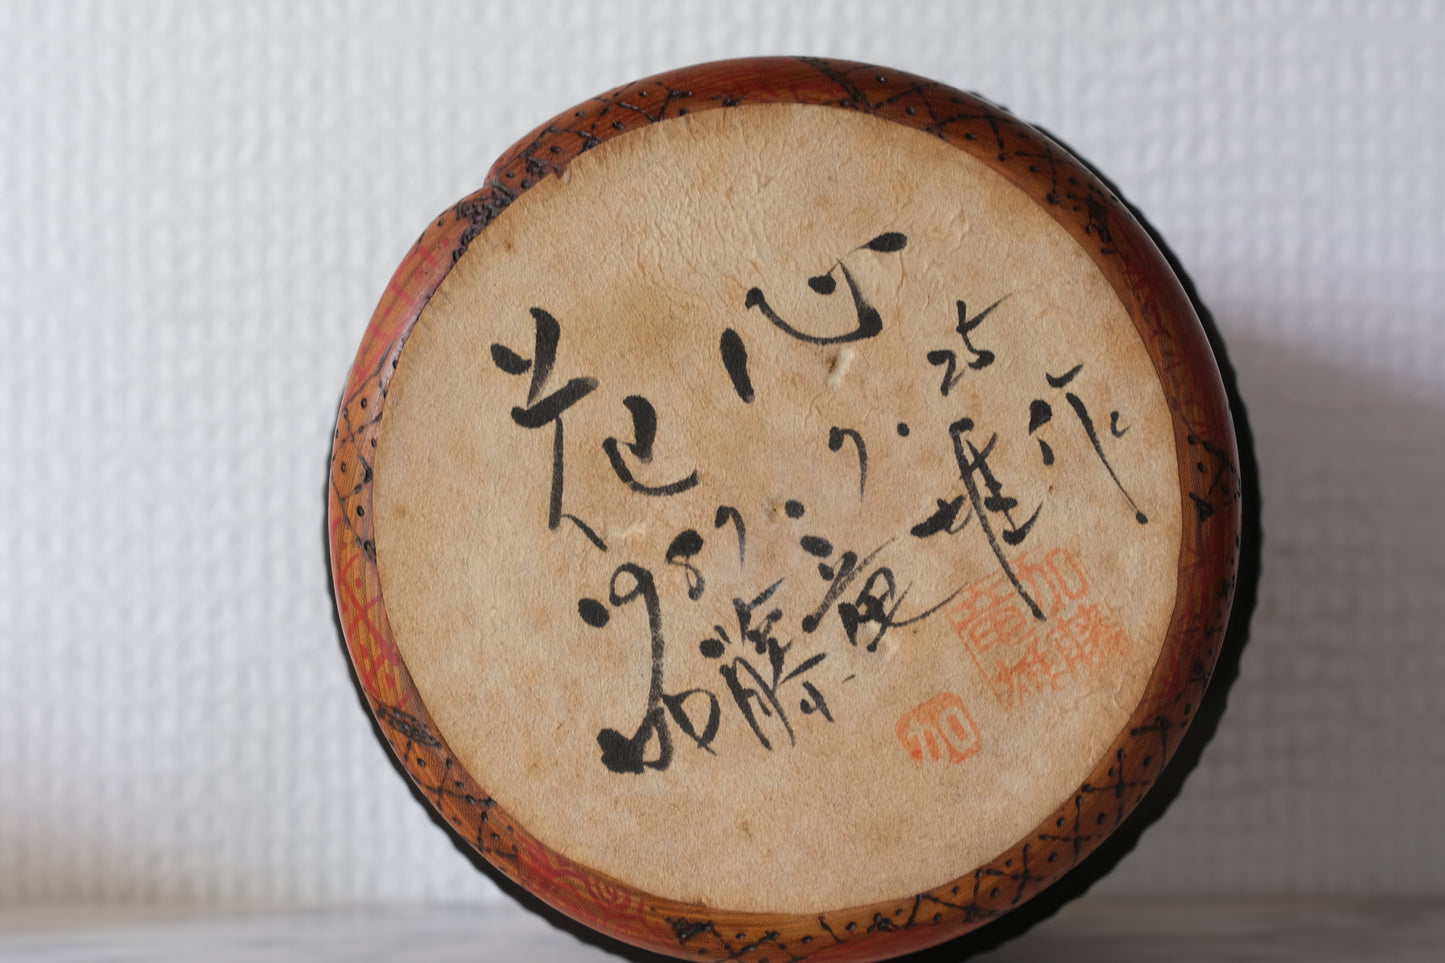 花心
1987.7.25
加藤竜雄作
加藤
竜雄
加